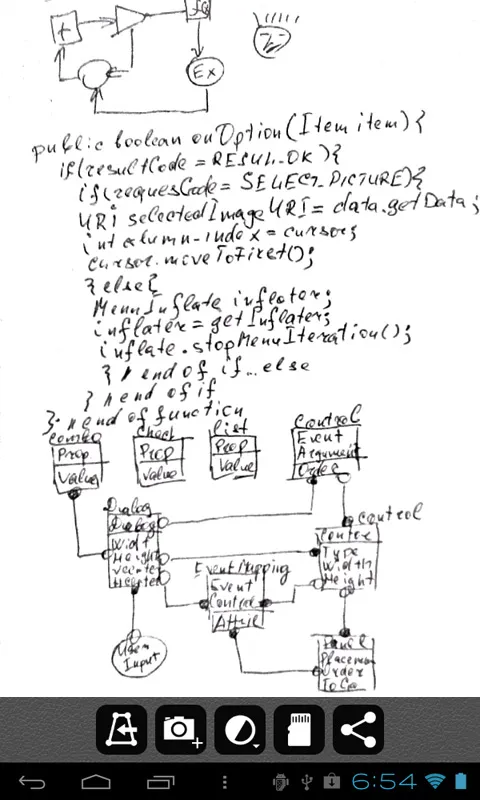 +
Ex
public boolean onOption(Item item){
if(resultCode = RESUL_OK){
if(requesCode = SELECT_PICTURE){
URi selectedImageURI = data.getData;
int column-index = cursor;
cursor.moveToFirst();
} else{
MenuInflate inflater;
inflater = getInflater;
inflate.stopMenuIteration();
} // end of if...else
} // end of if
}. // end of function
Combo
Prop
Value
Check
Prop
Value
List
Prop
Value
Control
Event
Argument
Order
Dialog
Dialog
Width
Height
Vcenter
Hcenter
Event Mapping
Event
Control
Attrib
Control
Type
Width
Height
User
Input
Panel
Placemen
Order
6:54